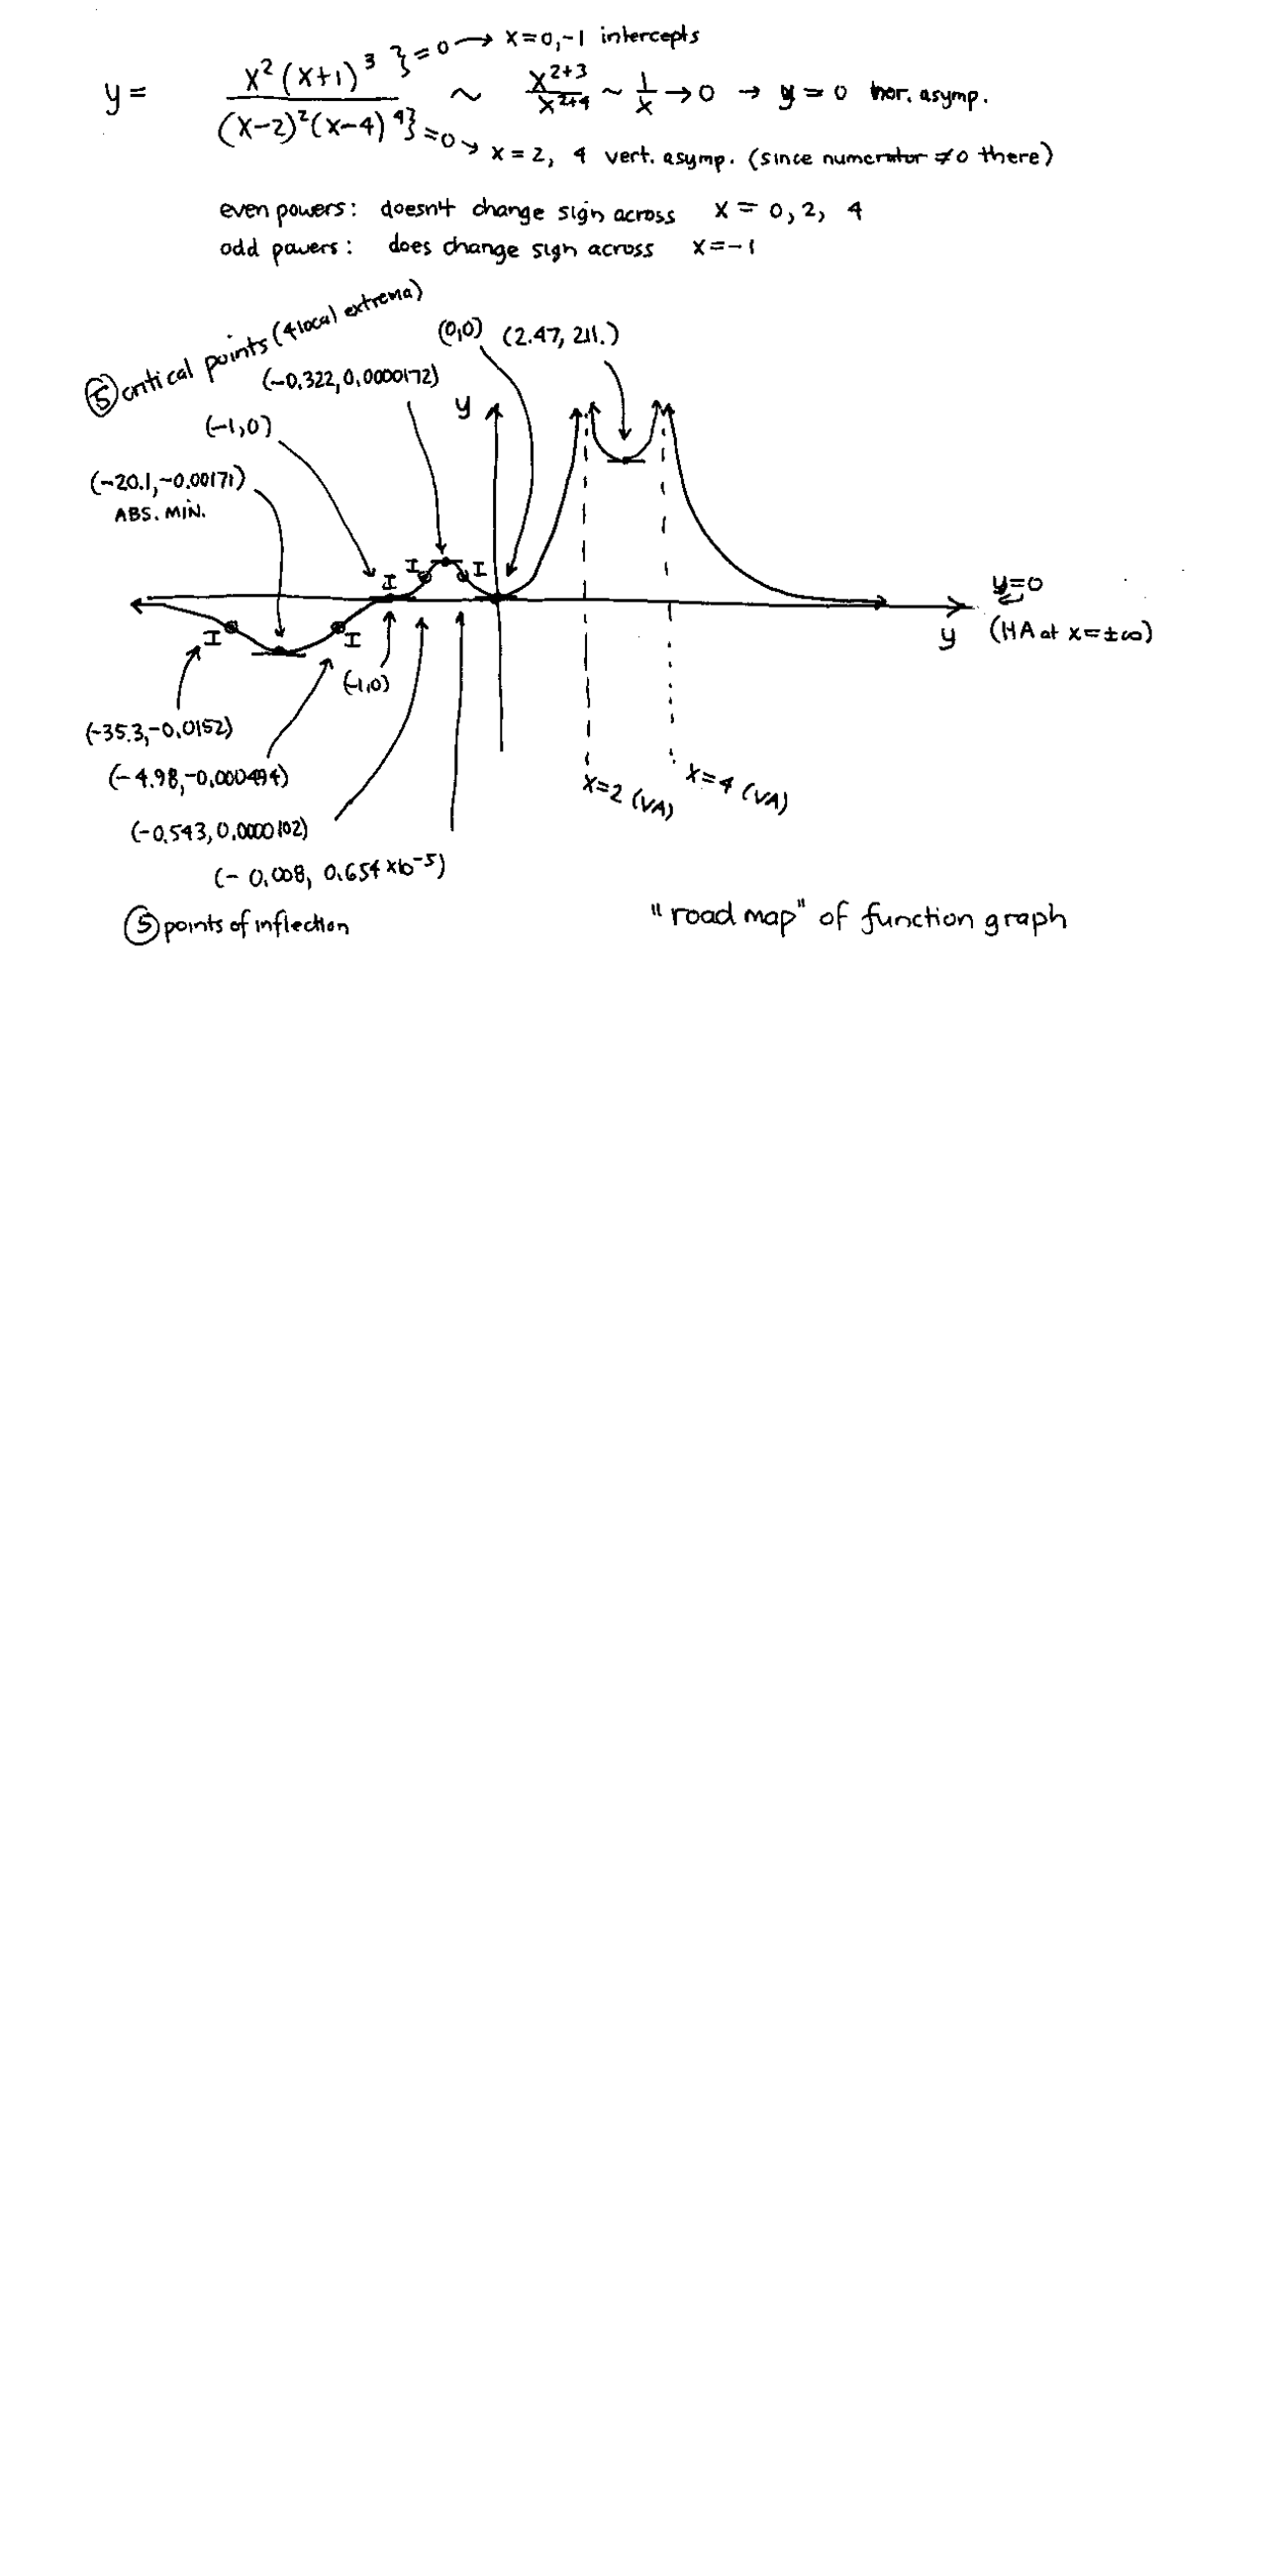 x²(x+1)³ } =0 → x=0,-1 intercepts
y = ――― ~ x²⁺³/x²⁺⁴ ~ 1/x → 0 → y = 0 hor. asymp.
(x-2)²(x-4)⁴ } =0 → x = 2, 4 vert. asymp. (since numerator ≠0 there)
even powers: doesn't change sign across x = 0, 2, 4
odd powers: does change sign across x=-1
⑤ critical points (4 local extrema)
(0,0) (2.47, 211.)
(-0.322, 0.0000172)
y
(-1,0)
(-20.1, -0.00171)
ABS. MIN.
I I I
y=0
I I
y (HA at x=±∞)
(-1,0)
(-35.3, -0.0152)
(-4.98, -0.000494)
x=2 (VA) x=4 (VA)
(-0.543, 0.0000102)
(- 0.008, 0.654 x10⁻⁵)
⑤ points of inflection
"road map" of function graph